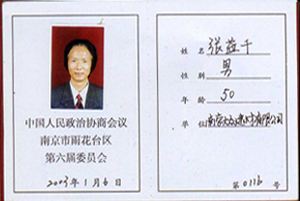 中国人民政治协商会议
南京市雨花台区
第六届委员会
2003年1月6日
姓名 张益千
性别 男
年龄 50
单位 南京 有限公司
第0116号